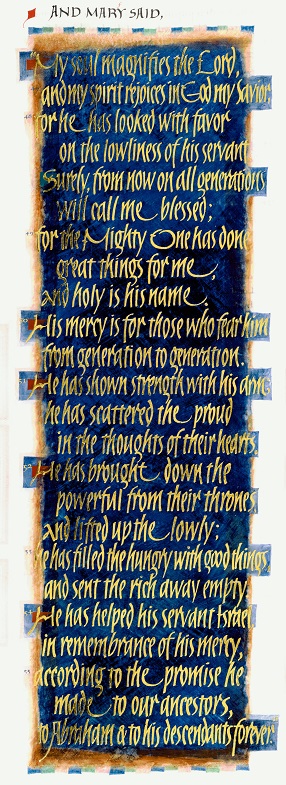 AND MARY SAID,
"My soul magnifies the Lord,
and my spirit rejoices in God my Savior
for he has looked with favor
on the lowliness of his servant
Surely, from now on all generations
will call me blessed;
for the Mighty One has done
great things for me,
and holy is his name.
His mercy is for those who fear him
from generation to generation.
He has shown strength with his arm;
he has scattered the proud
in the thoughts of their hearts.
He has brought down the
powerful from their thrones
and lifted up the lowly;
he has filled the hungry with good things,
and sent the rich away empty.
He has helped his servant Israel
in remembrance of his mercy,
according to the promise he
made to our ancestors,
to Abraham & to his descendants forever."